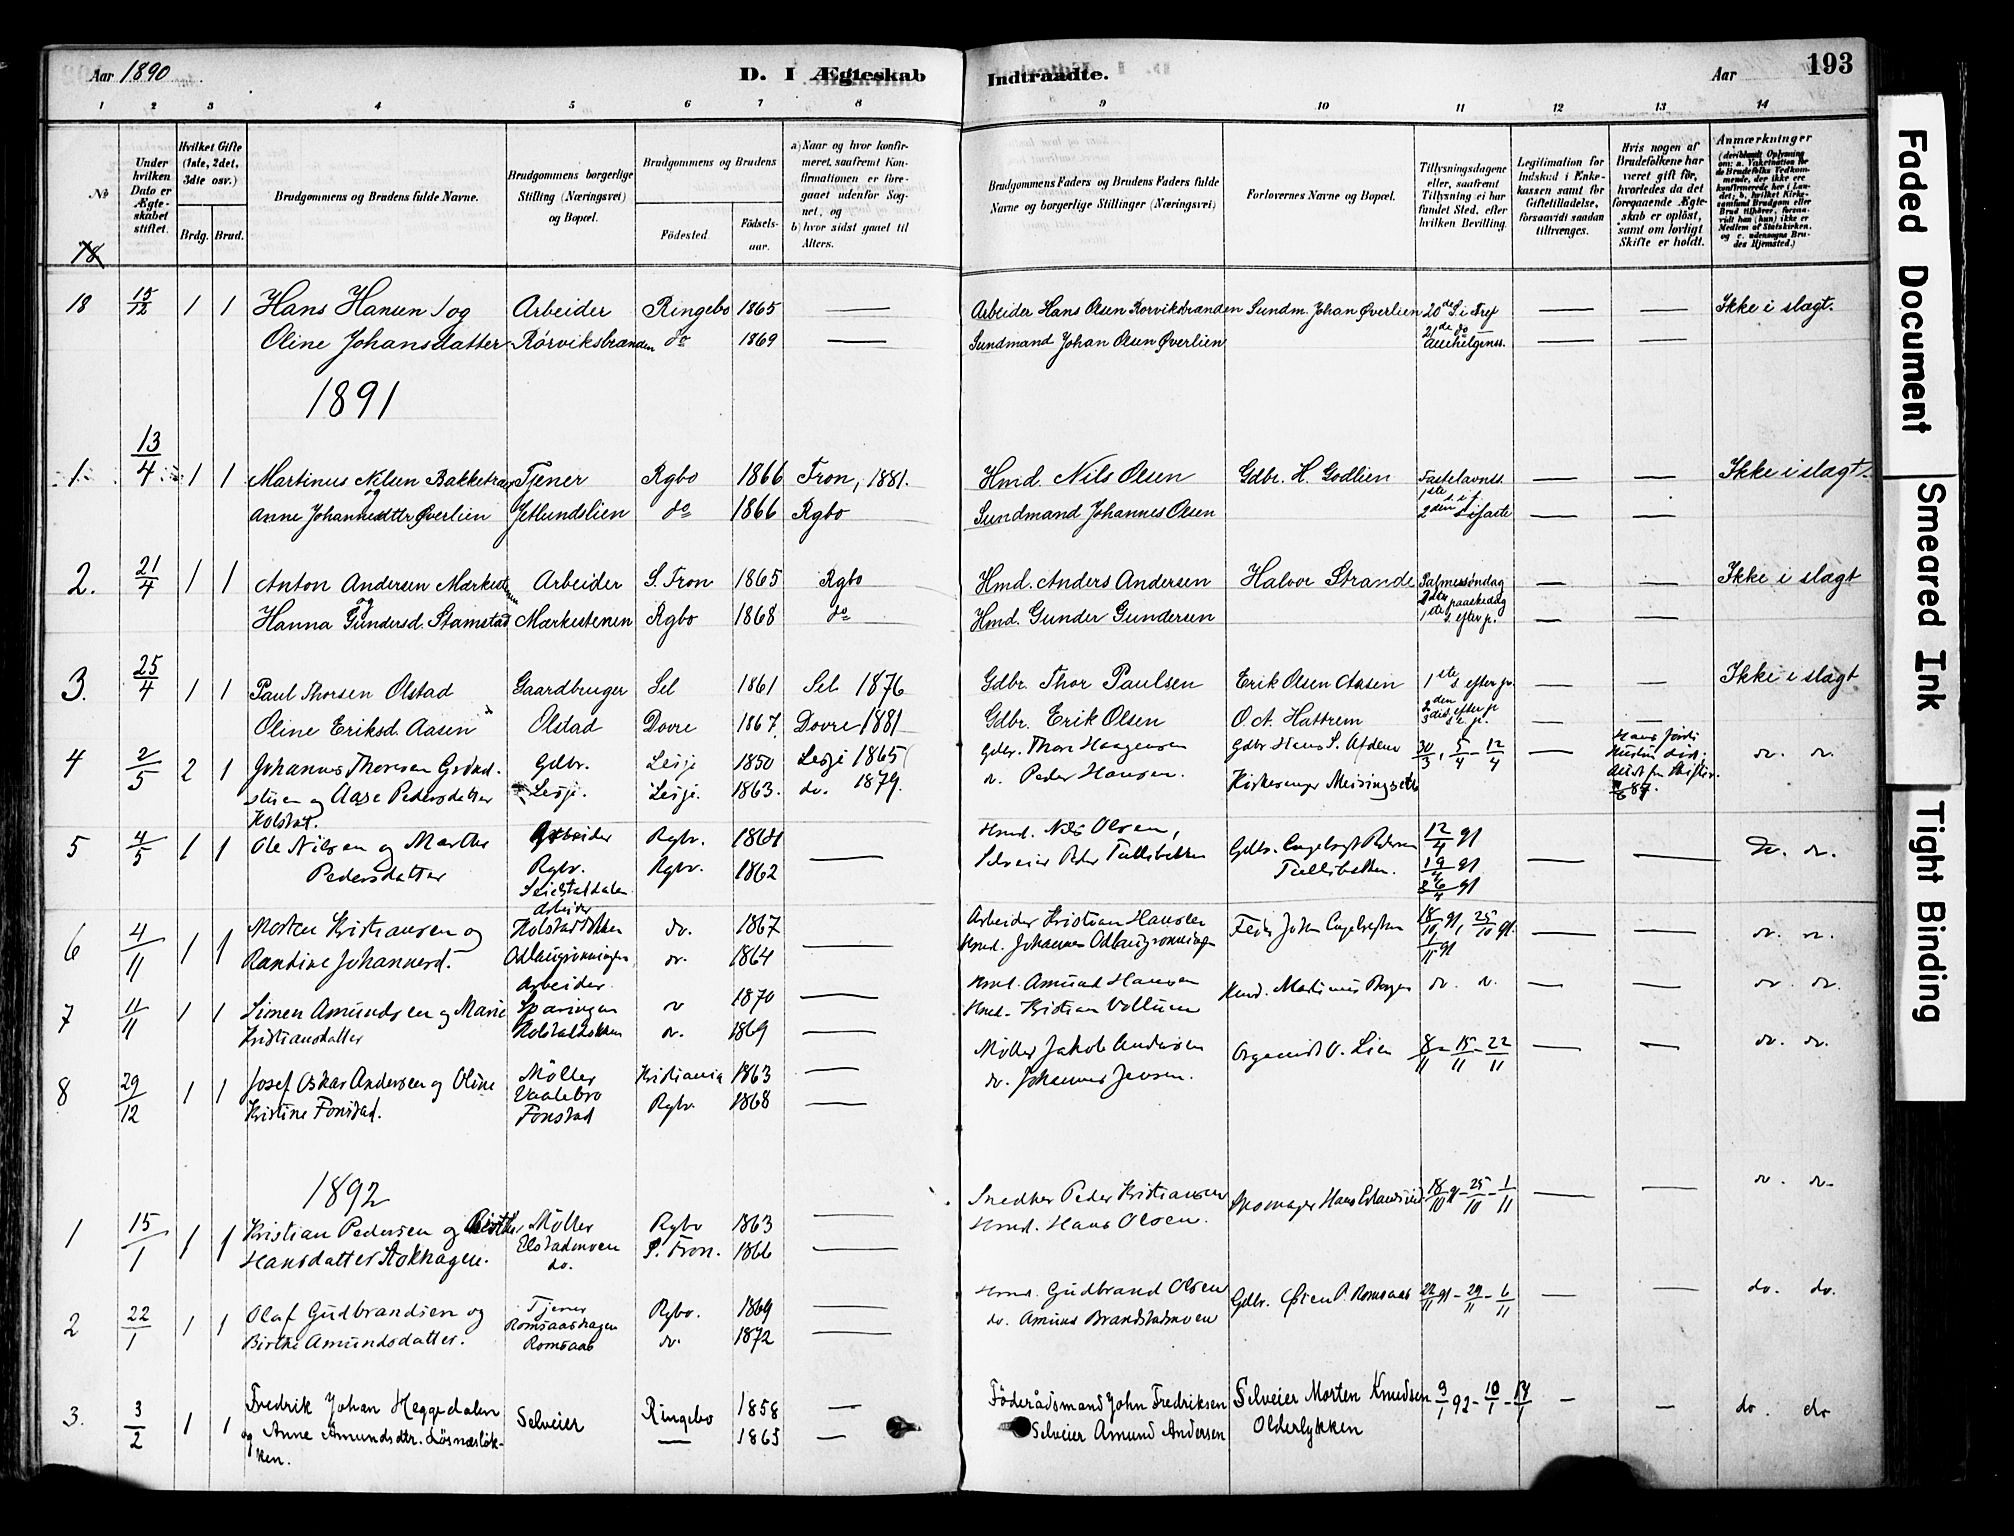 Aar 1890
D. I Ægteskab Indtraadte.
Aar
193
1 2 3 4 5 6 7 8 9 10 11 12 13 14
No
Under hvilken Dato er Ægteskabet stiftet.
Hvilket Gifte (1ste, 2det, 3die osv.)
Brdg. Brud.
Brudgommens og Brudens fulde Navne.
Brudgommens borgerlige Stilling (Næringsvei) og Bopæl.
Brudgommens og Brudens
Fødested. Fødselsaar.
a) Naar og hvor konfirmeret, saafremt Konfirmationen er foregaaet udenfor Sognet, og
b) hvor sidst gaaet til Alters.
Brudgommens Faders og Brudens Faders fulde Navne og borgerlige Stillinger (Næringsvei)
Forlovernes Navne og Bopæl.
Tillysningsdagene eller, saafremt Tillysning ei har fundet Sted, efter hvilken Bevilling.
Legitimation for Indskud i Enkekassen samt for Giftetilladelse, forsaavidt saadan tiltrænges.
Hvis nogen af Brudefolkene har været gift før, hvorledes da det foregaaende Ægteskab er opløst, samt om lovligt Skifte er holdt.
Anmærkninger
18 15/12 1 1 Hans Hansen og Arbeider Ringebo 1865 — Arbeider Hans Olsen Rorviksbranden Sundm. Johan Øverlien 20de S. i Tref — — Ikke i slagt.
Oline Johansdatter Rørviksbranden do 1869 — Sundmand Johan Olsen Øverlien 21de do Allehelgenss. — —
1891
1 13/4 1 1 Martinus Nilsen Bakketræet Tjener Rgbo 1866 Fron, 1881. Hmd. Nils Olsen Gdbr. H. Godlien Fastelavnss. — — Ikke i slagt.
og Anne Johannesdtr Øverlien Jetlundslien do 1866 Rgbo Sundmand Johannes Olsen 1ste s. i f. 2den s. i faste — —
2. 21/4 1 1 Anton Andersen Mærkesten Arbeider S. Fron 1865 Rgbo Hmd. Anders Andersen Halvor Strande Palmesøndag — — Ikke i slagt
og Hanna Gundersd. Stamstad Mærkestenen Rgbo 1868 do Hmd. Gunder Gundersen 2den paaskedag 1ste s. efter p. — —
3. 25/4 1 1 Paul Thorsen Olstad Gaardbruger Sel 1861 Sel 1876 Gdbr. Thor Paulsen Erik Olsen Aasen 1ste s. efter p. — — Ikke i slagt
Oline Eriksd. Aasen Olstad Dovre 1867. Dovre 1881 Gdbr. Erik Olsen O. A. Hattrem 2den s. efter p 3die s. e. p. — —
4 2/5 2 1 Johannes Thoresen Gdbr. Lesje 1850 Lesje 1865 Gdbr. Thore Haagensen Gdbr Hans S. 30/3, 5/4 – 12/4 — do. do.
og Aase Pedersdatter Lesje. Lesje. 1863. do. 1879. do. Peder Hansen. Kirkesanger 87.
Holstad.
5 4/5 1 1 Ole Nilsen og Marthe Arbeider Rgbo. 1861 — Hmd. Nils Olsen, Gdbr. Engebregt Pedersen 12/4 91 — — do. do.
Pedersdatter Rgbo. Rgbo. 1862 Selveier Peder Tullibakken Tullibakken. 19/4 91
26/4 91
6 4/11 1 1 Morten Kristiansen og Arbeider Holstadlykken do. 1867 — Arbeider Kristian Hansen 18/10 91, 25/10 91. — — do. do.
Randine Johannesd. do. 1864 Hmd. Johannes 1/11 91
7 11/11 1 1 Simen Amundsen og Marie Arbeider do 1870 — Hmd. Amund Hansen Hmd. Martinus do. do. — — do. do.
Kristiansdatter Holstadlykken do. 1869 — Hmd. Kristian Vollum
8 29/12 1 1 Josef Oskar Andersen og Oline Møller Kristiania 1863 — Møller Jakob Andersen Organist O. Lien 8/11 – 15/11 – 22/11 — — do. do.
Kristine Fonstad. Vaalebro Fonstad Rgbo 1868 — do. Johannes Jensen.
1892
1 15/1 1 1 Kristian Pedersen og Birthe Møller Rgbo 1863 — Snedker Peder Kristiansen Skomager Hans 18/10 91 – 25/10 – 1/11 — — do. do.
Hansdatter Stokhagen. Elstadmoen do. S. Fron. 1866 — Hmd. Hans Olsen.
2 22/1 1 1 Olaf Gudbrandsen og Tjener Romsaashagen Rgbo. 1869 — Hmd. Gudbrand Olsen Gdbr. Østen P. Romsaas 22/11 91 – 29/11 – 6/11 — — do. do.
Birthe Amundsdatter. Romsaas do. 1872 — do. Amund Brandstadmoen
3. 3/2 1 1 Fredrik Johan Heggedalen Selveier Ringebo 1858 — Föderådsmand John Fredriksen Selveier Morten Knudsen 3/1 92 – 10/1 – 17/1 — — do. do
og Anne Amundsdtr. Løsnæsløkken. — 1865 — Selveier Amund Andersen Olderlykken
Faded Document
Smeared Ink
Tight Binding